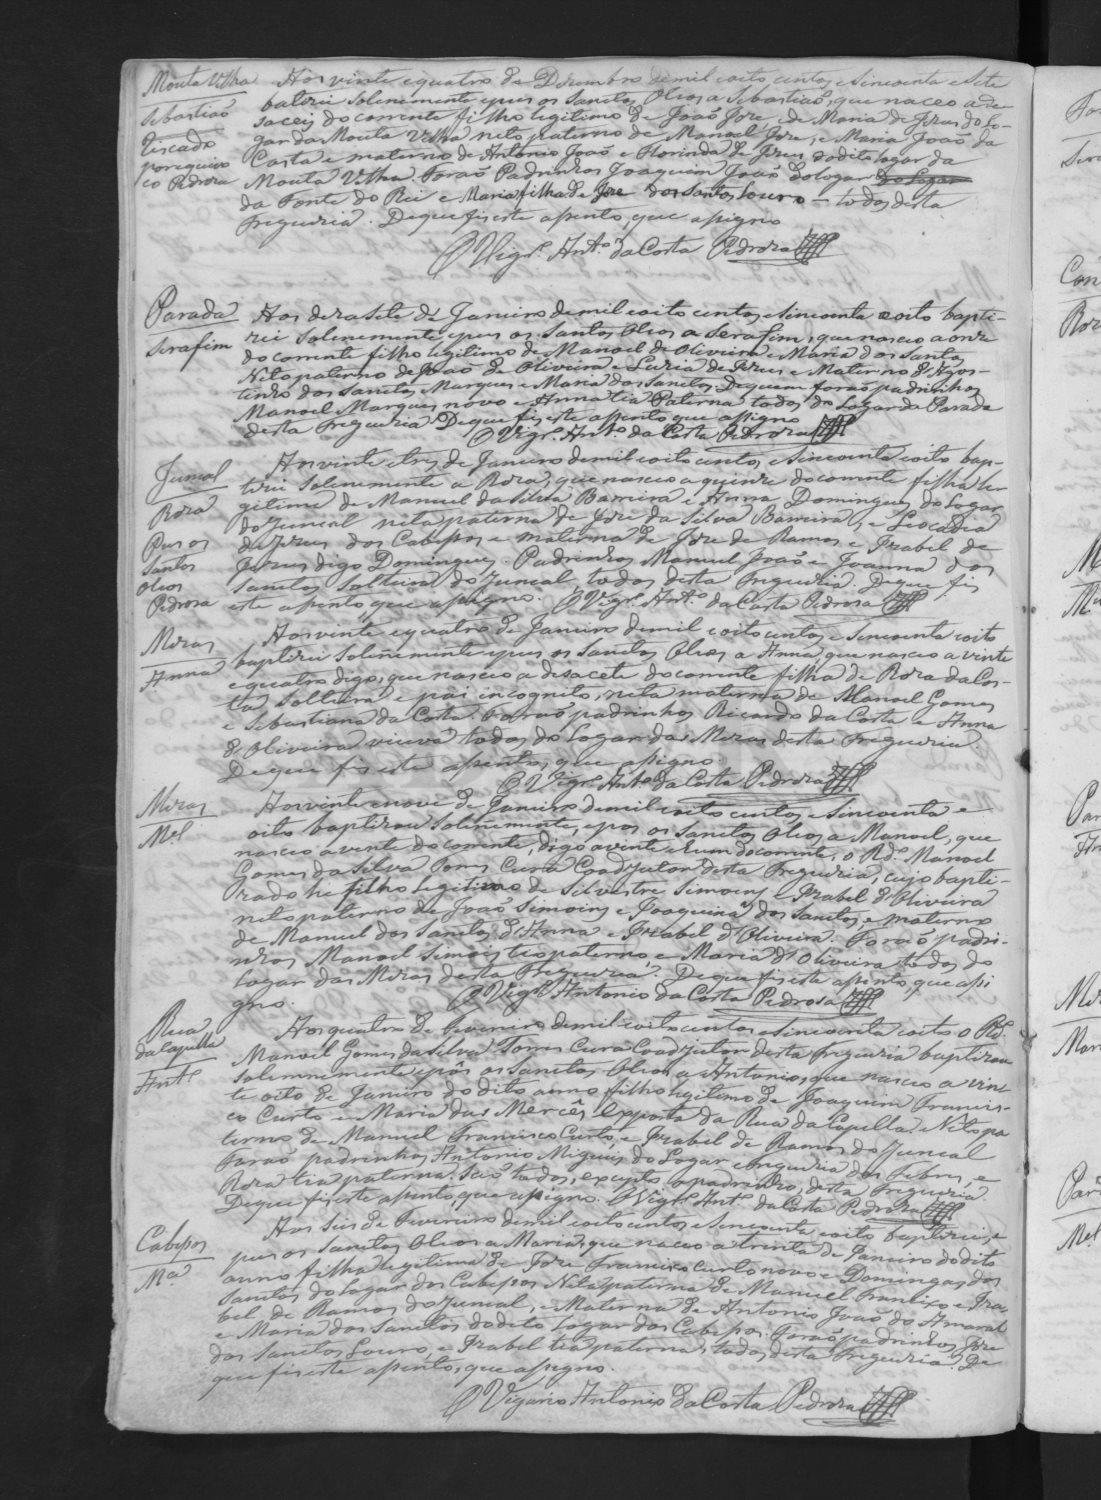 Mouta Velha
Sebastiaõ
Riscado
por equivo
co Pedroza
Aos vinte e quatro de Dezembro de mil oito centos e sincoenta e sete
baticei solenemente e pus os Santos Oleos a Sebastiaõ, que naceo a de-
saceis do corrente filho legitimo de Joaõ Joze, e de Maria de Jezus do lo-
gar da Mouta Velha neto paterno de Manoel Joze, e Maria Joaõ da
Costa e materno de Antonio Joaõ e Florinda de Jezus do dito logar da
Mouta Velha. Foraõ Padrinhos Joaquim Joaõ do logar do logar
da Fonte do Rei e Maria filha de Joze dos Santos Louro — todos desta
Freguezia. De que fis este asento, que asigno
O Vigr.º Ant.º da Costa Pedroza
Parada
Serafim
Aos dezasete de Janeiro de mil oito centos e sincoenta e oito bapti-
zei solenemente e pus os Santos Oleos a Serafim, que nasceo a onze
do corrente filho legitimo de Manoel de Oliveira e Maria dos Santos
Neto paterno de Joaõ de Oliveira e Luzia de Jezus e Materno d'Agos-
tinho dos Santos Marques e Maria dos Santos De quem foraõ padrinhos
Manoel Marques novo e Anna tia Paterna todos do Logar da Parada
desta Freguezia De que fis este asento que asigno
O Vigr.º Ant.º da Costa Pedroza
Juncal
Roza
Pus os
Santos
Oleos
Pedroza
Aos vinte e tres de Janeiro de mil oito centos e sincoenta e oito bap-
tizei solenemente a Roza, que nasceo a quinze do corrente filha le-
gitima de Manuel da Silva Barreira e Anna Domingues do Logar
do Juncal neta paterna de Joze da Silva Barreira, e Leocadia
de Jezus dos Cabesos e materna de Joze de Ramos e Izabel de
Jezus digo Domingues. Padrinhos Manuel Joaõ e Joanna dos
Santos Solteira do Juncal todos desta Freguezia. De que fis
este asento, que asigno. O Vigr.º Ant.º da Costa Pedroza
Meras
Anna
Aos vinte e quatro de Janeiro de mil oito centos e sincoenta e oito
baptizei solenemente e pus os Santos Oleos a Anna que nasceo a vinte
e quatro digo, que nasceo a desacete do corrente filha de Roza da Cos-
ta, Solteira e pai incognito, neta materna de Manoel Gomes
e Sebastiana da Costa. Foraõ padrinhos Ricardo da Costa e Anna
d'Oliveira viuva todos do Logar das Meras desta Freguezia.
De que fis este asento, que asigno
O Vigr.º Ant.º da Costa Pedroza
Meras
M.el
Aos vinte e nove de Janeiro de mil oito centos e sincoenta e
oito baptizou solenemente, e pos os Santos Oleos a Manoel, que
nasceo a vente do corrente, digo a vinte e hum do corrente, o Rd.º Manoel
Gomes da Silva Tomé Cura Coadjutor desta Freguezia, cujo bapti-
zado he filho legitimo de Silvestre Simoens e Izabel d'Oliveira
neto paterno de Joaõ Simoins e Joaquina dos Santos, e materno
de Manuel dos Santos d'Anna e Izabel d'Oliveira. Foraõ padri-
nhos Manoel Simoes tio paterno, e Maria d'Oliveira todos do
Logar das Meras desta Freguezia. De que fis este asento, que asi
gno.
O Vigr.º Antonio da Costa Pedrosa
Rua
da Capella
Ant.º
Aos quatro de Fevereiro de mil oito centos e sincoenta e oito o Rd.º
Manoel Gomes da Silva Tomé Cura Coadjutor desta Freguezia baptizou
solemnemente e pôs os Santos Oleos a Antonio, que nasceo a vin-
te oito de Janeiro do dito anno filho legitimo de Joaquim Francis-
co Curto e Maria das Mercês, Exposta da Rua da Capella. Neto pa
terno de Manuel Francisco Curto, e Izabel de Ramos do Juncal
Foraõ padrinhos Antonio Migueis do Logar e Freguezia das Febres, e
Roza tia paterna. Saõ todos, excepto o padrinho, desta Freguezia
De que fis este asento que asigno. O Vigr.º Ant.º da Costa Pedroza
Cabesos
M.ª
Aos seis de Fevereiro de mil oito centos e sincoenta e oito baptizei, e
pus os Santos Oleos a Maria, que naceo a trinta de Janeiro do dito
anno filha legitima de Joze Francisco Curto novo e Domingas dos
Santos do Logar dos Cabesos Neta paterna de Manuel Francisco e Iza-
bel de Ramos do Juncal, e Materna de Antonio Joaõ do Amaral
e Maria dos Santos do dito Logar dos Cabesos. Foraõ padrinhos Joze
dos Santos Louro, e Izabel tia paterna, todos desta Freguezia. De
que fis este asento, que asigno.
O Vigario Antonio da Costa Pedroza